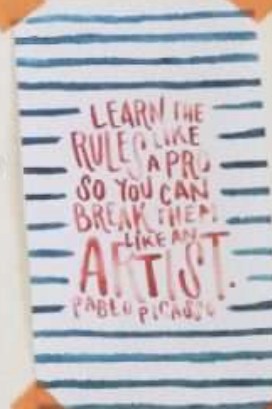 LEARN THE
RULES LIKE
A PRO
SO YOU CAN
BREAK THEM
LIKE AN
ARTIST.
PABLO PICASSO